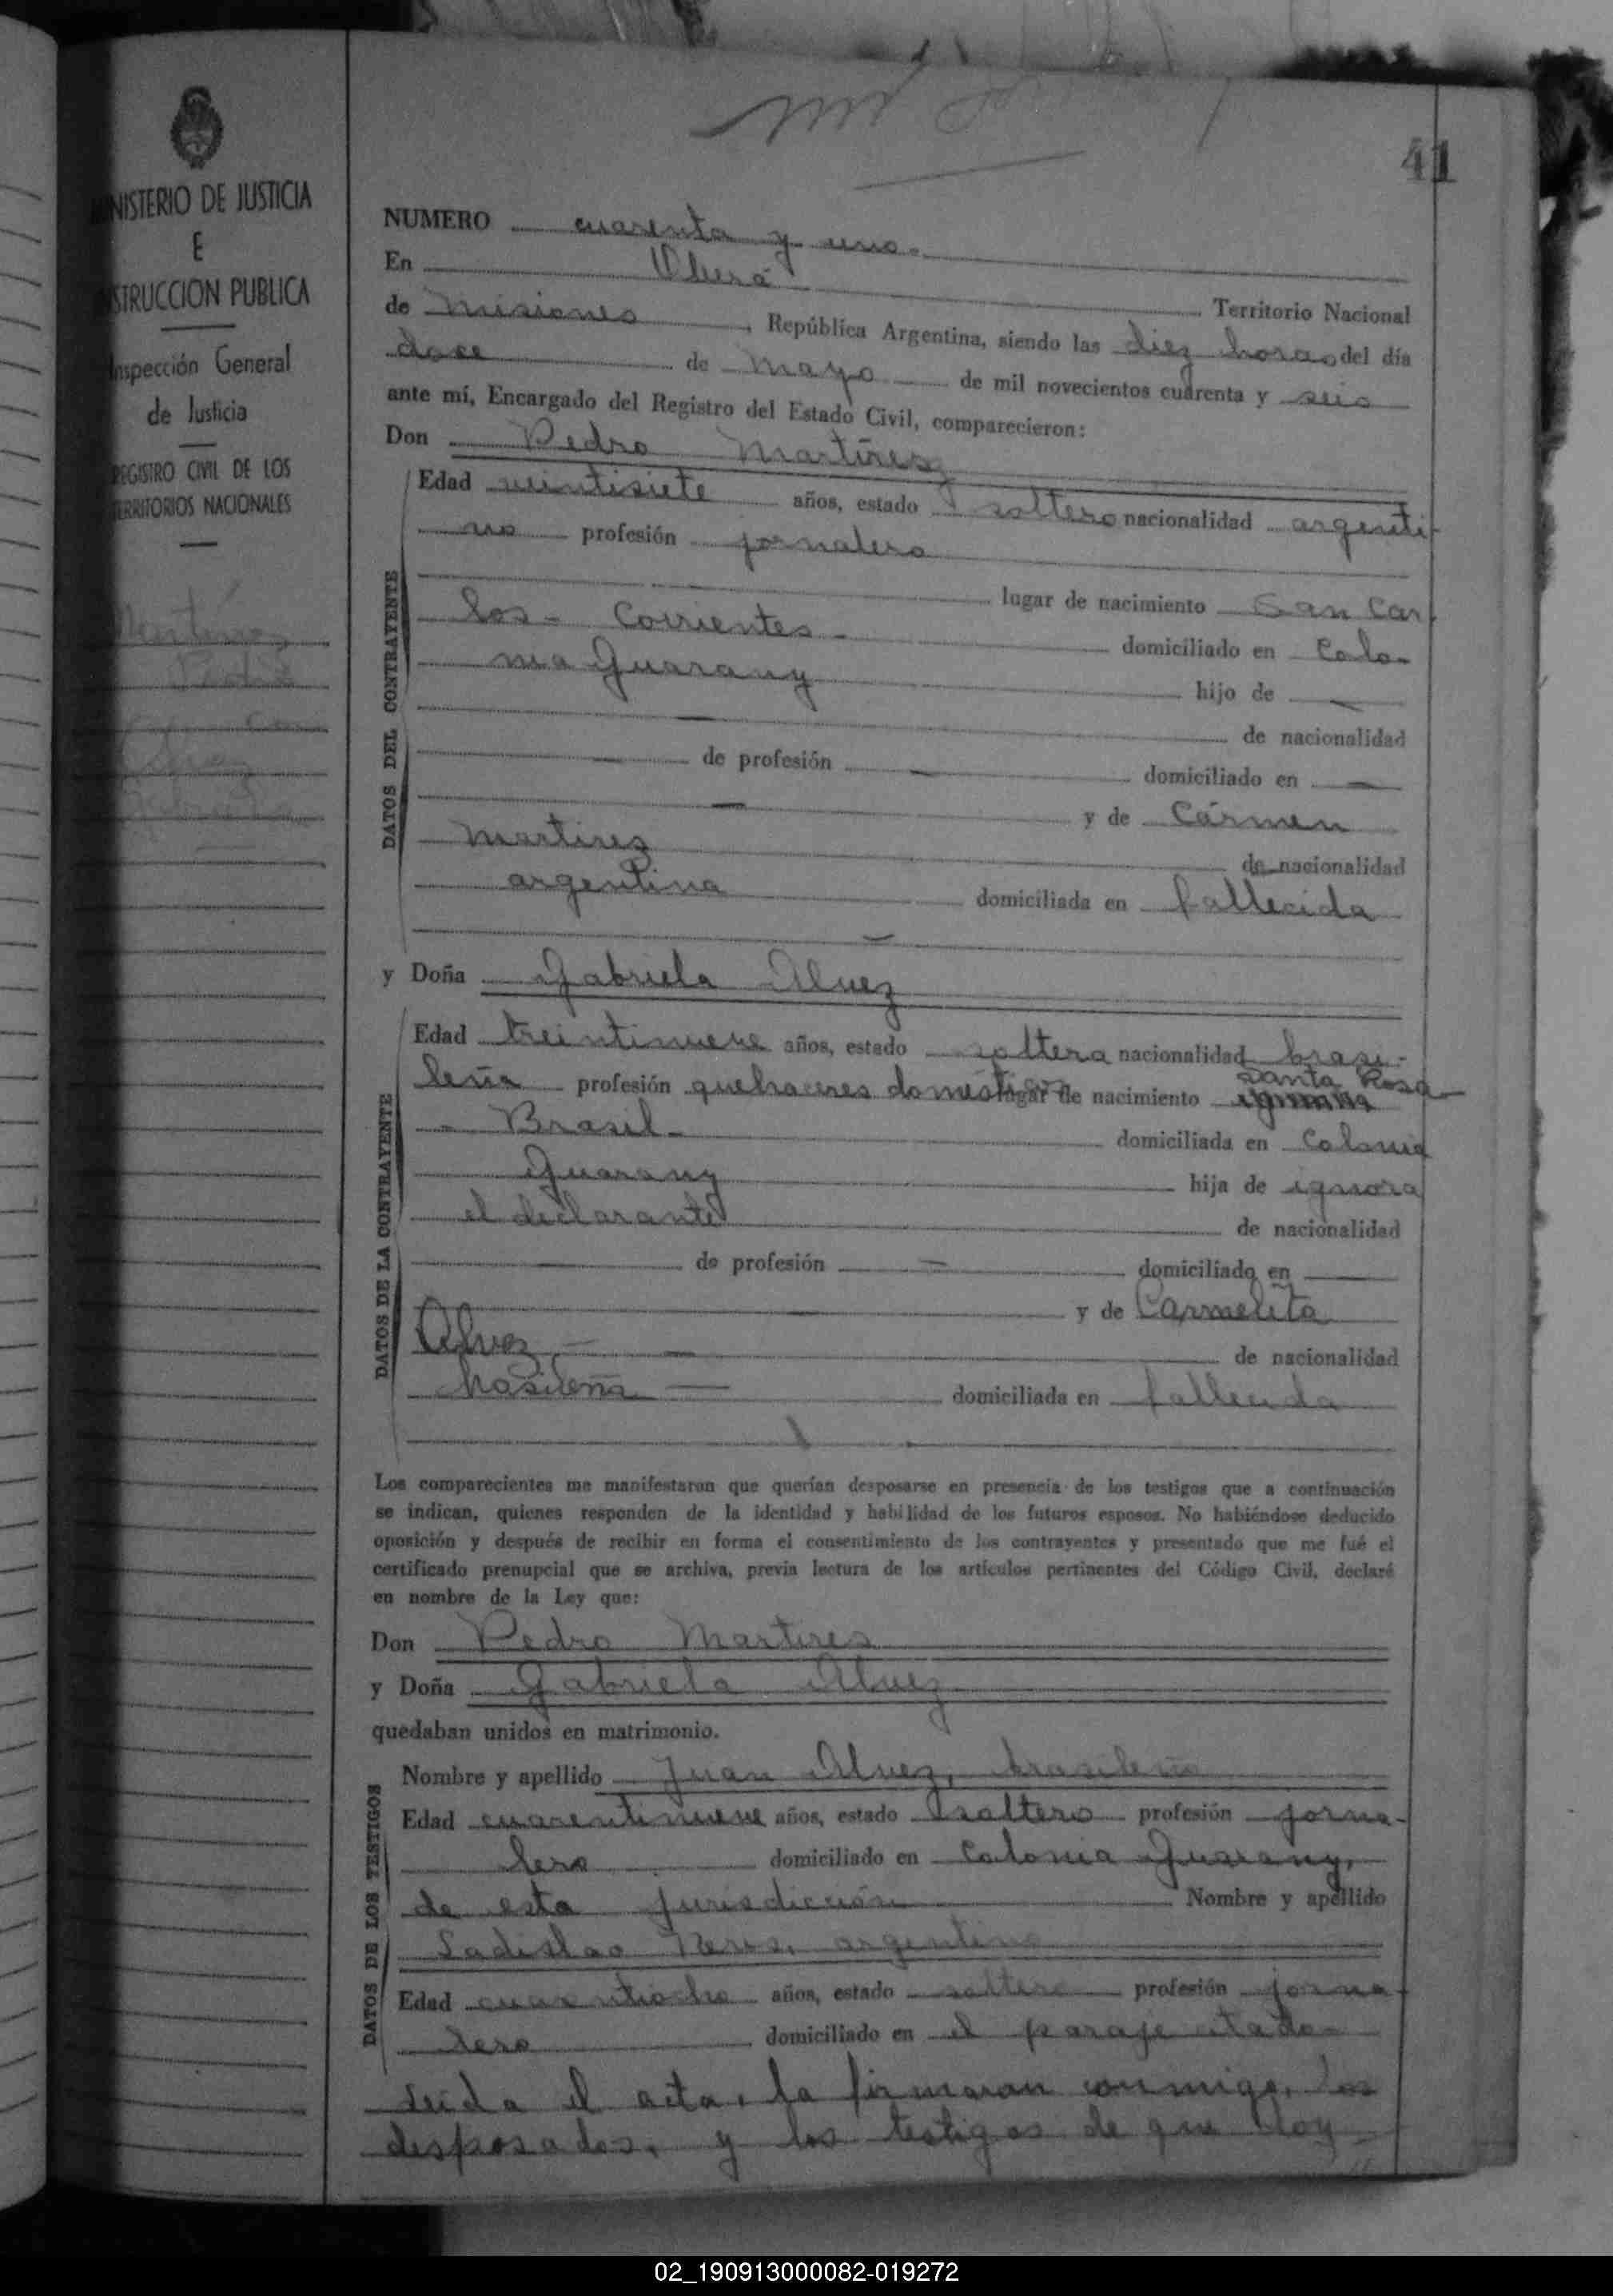 MINISTERIO DE JUSTICIA
E
INSTRUCCION PUBLICA
Inspección General
de Justicia
REGISTRO CIVIL DE LOS
TERRITORIOS NACIONALES
Pedro
con
Alvez
Gabriela
41
NUMERO cuarenta y uno.
En Oberá
Territorio Nacional
de Misiones, República Argentina, siendo las diez horas del día
doce de Mayo de mil novecientos cuarenta y seis
ante mí, Encargado del Registro del Estado Civil, comparecieron:
Don Pedro Martires
DATOS DEL CONTRAYENTE
Edad veintisiete años, estado soltero nacionalidad argenti-
no profesión jornalero
lugar de nacimiento San Car
los - Corrientes - domiciliado en Colo-
nia Guarany hijo de —
— de nacionalidad
— de profesión — domiciliado en —
— y de Cármen
Martirez de nacionalidad
argentina domiciliada en fallecida
—
y Doña Gabriela Alvez
DATOS DE LA CONTRAYENTE
Edad treintinueve años, estado soltera nacionalidad brasi-
leña profesión quehaceres domésticos lugar de nacimiento Santa Rosa
- Brasil - domiciliada en Colonia
Guarany hija de ignora
el declarante de nacionalidad
— de profesión — domiciliado en —
— y de Carmelita
Alvez — de nacionalidad
brasileña — domiciliada en fallecida
Los comparecientes me manifestaron que querían desposarse en presencia de los testigos que a continuación
se indican, quienes responden de la identidad y habilidad de los futuros esposos. No habiéndose deducido
oposición y después de recibir en forma el consentimiento de los contrayentes y presentado que me fué el
certificado prenupcial que se archiva, previa lectura de los artículos pertinentes del Código Civil, declaré
en nombre de la Ley que:
Don Pedro Martires
y Doña Gabriela Alvez
quedaban unidos en matrimonio.
DATOS DE LOS TESTIGOS
Nombre y apellido Juan Alvez, brasileño
Edad cuarentinueve años, estado soltero profesión jorna-
lero domiciliado en Colonia Guarany,
de esta jurisdicción Nombre y apellido
Ladislao Neris, argentino
Edad cuarentiocho años, estado soltero profesión jorna-
lero domiciliado en el paraje citado-
Leida el acta, la firmaron conmigo, los
desposados, y los testigos de que doy
02_190913000082-019272